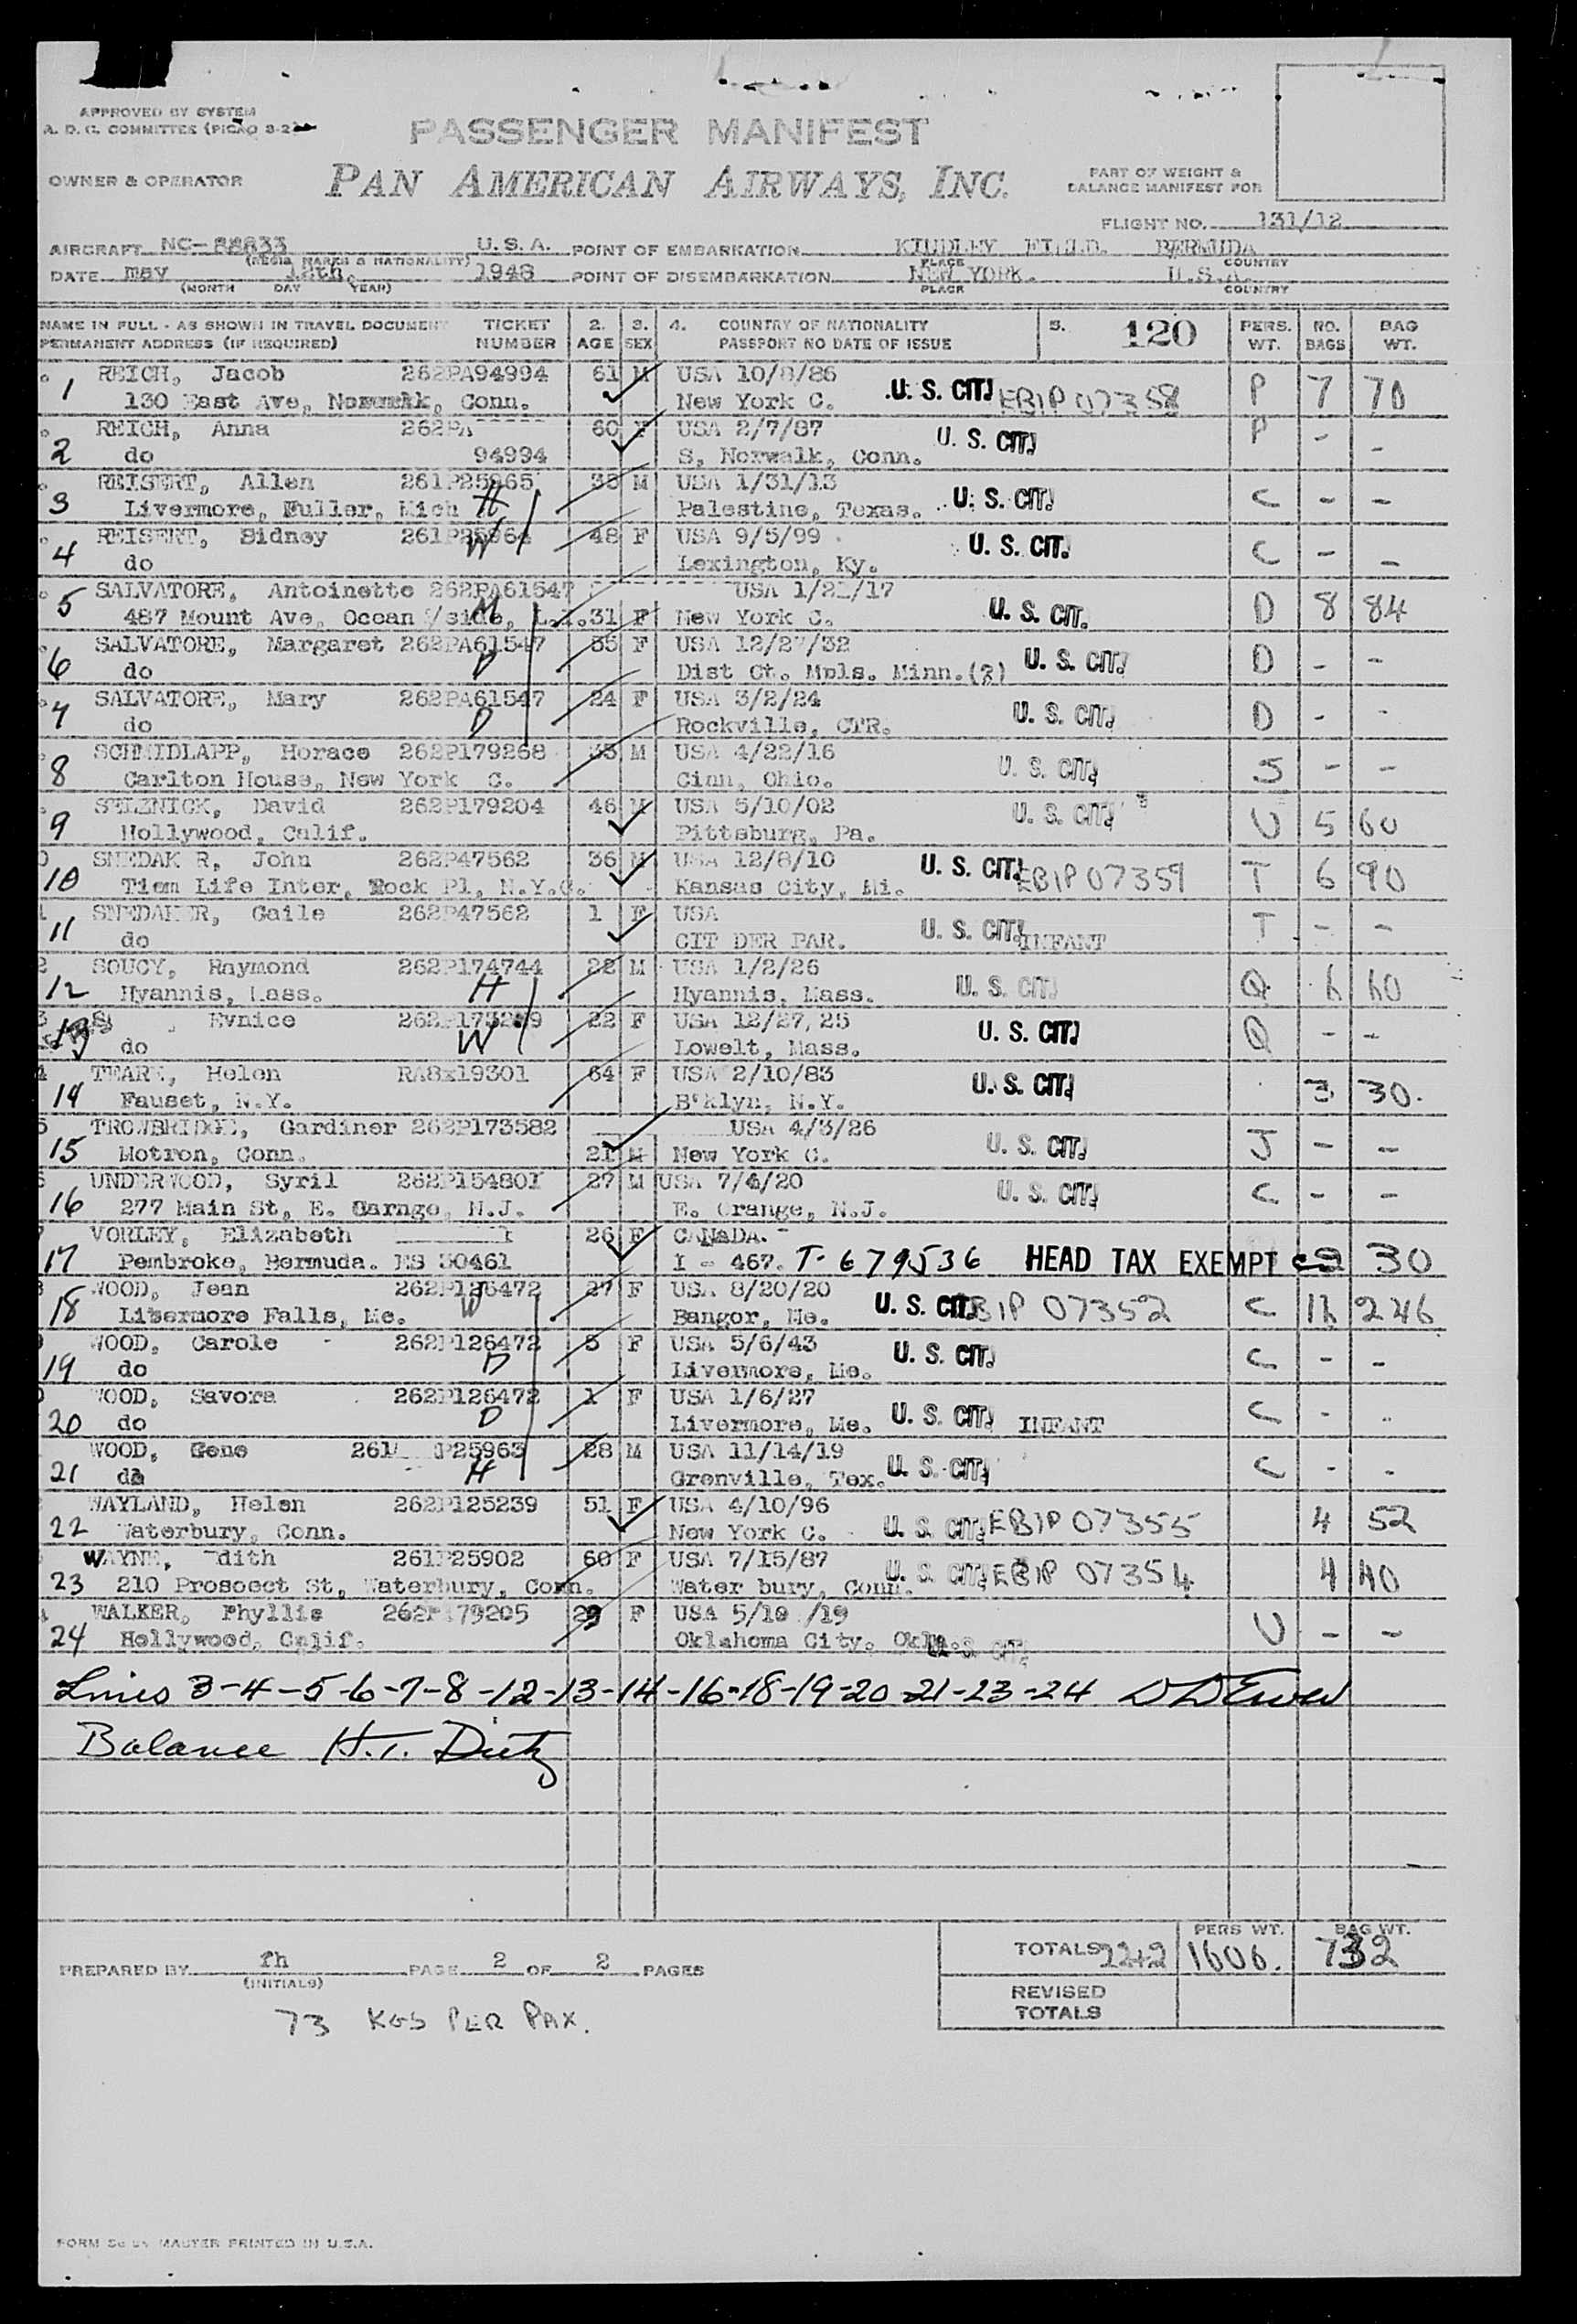 APPROVED BY SYSTEM
A. D. C. COMMITTEE (PICAO 8-2)
PASSENGER MANIFEST
OWNER & OPERATOR
PAN AMERICAN AIRWAYS, INC.
PART OF WEIGHT &
BALANCE MANIFEST FOR
FLIGHT NO. 131/12
AIRCRAFT NC-88833 U.S.A. POINT OF EMBARKATION KINDLEY FIELD. BERMUDA
(REGIS MARKS & NATIONALITY) PLACE COUNTRY
DATE may 12th, 1948 POINT OF DISEMBARKATION NEW YORK. U.S.A.
(MONTH DAY YEAR) PLACE COUNTRY
NAME IN FULL - AS SHOWN IN TRAVEL DOCUMENT TICKET 2. 3. 4. COUNTRY OF NATIONALITY 5. 120 PERS. NO. BAG
PERMANENT ADDRESS (IF REQUIRED) NUMBER AGE SEX PASSPORT NO DATE OF ISSUE WT. BAGS WT.
1 REICH, Jacob 262PA94994 61 M USA 10/8/86 U. S. CIT. EBIP 07358 P 7 70
130 East Ave, Conn. New York C.
2 REICH, Anna 262PA 60 F USA 2/7/87 U. S. CIT. P - -
do 94994 S, Norwalk, Conn.
3 REISERT, Allen 261P25965 35 M USA 1/31/13 U. S. CIT. C - -
Livermore, Fuller, Mich H Palestine, Texas.
4 REISERT, Sidney 261P25964 48 F USA 9/5/99 U. S. CIT. C - -
do W Lexington, Ky.
5 SALVATORE, Antoinette 262PA61547 USA 1/21/17 U. S. CIT. D 8 84
487 Mount Ave, Ocean side, L.I. M 31 F New York C.
6 SALVATORE, Margaret 262PA61547 35 F USA 12/27/32 U. S. CIT. D - -
do D Dist Ct. Mpls. Minn.(2)
7 SALVATORE, Mary 262PA61547 24 F USA 3/2/24 U. S. CIT. D - -
do D Rockville, CTR.
8 SCHMIDLAPP, Horace 262P179268 35 M USA 4/22/16 U. S. CIT. S - -
Carlton House, New York C. Cinn, Ohio.
9 SELZNICK, David 262P179204 46 M USA 5/10/02 U. S. CIT. U 5 60
Hollywood, Calif. Pittsburg, Pa.
10 SNEDAK R, John 262P47562 36 M USA 12/8/10 U. S. CIT. EBIP 07359 T 6 90
Tiem Life Inter, Rock Pl, N.Y.C. Kansas City, Mi.
11 SNEDAKER, Gaile 262P47562 1 F USA U. S. CIT. T - -
do CIT DER PAR. INFANT
12 SOUCY, Raymond 262P174744 22 M USA 1/2/26 U. S. CIT. Q 6 60
Hyannis, Mass. H Hyannis, Mass.
13 Evnice 22 F USA 12/27/25 U. S. CIT. Q - -
do W Lowelt, Mass.
14 Helen RA8x19301 64 F USA 2/10/83 U. S. CIT. 3 30.
Fauset, N.Y. B'klyn, N.Y.
15 TROWBRIDGE, Gardiner 262P173582 USA 4/3/26 U. S. CIT. J - -
Motron, Conn. 21 M New York C.
16 UNDERWOOD, Syril 262P154801 27 M USA 7/4/20 U. S. CIT. C - -
277 Main St, E. Oarnge, N.J. E. Orange, N.J.
17 VORLEY, Elizabeth 26 F CANaDA.
Pembroke, Bermuda. ES 30461 I - 467. T-679536 HEAD TAX EXEMPT 30
18 WOOD, Jean 262P126472 27 F USA 8/20/20 U. S. CIT. EBIP 07352 C 246
Litermore Falls, Me. W Bangor, Me.
19 WOOD, Carole 262P126472 5 F USA 5/6/43 U. S. CIT. C - -
do D Livermore, Me.
20 WOOD, Savora 262P126472 1 F USA 1/6/27 U. S. CIT. C - -
do D Livermore, Me. INFANT
21 WOOD, Gene 261 P25963 28 M USA 11/14/19 U. S. CIT. C - -
do H Grenville, Tex.
22 WAYLAND, Helen 262P125239 51 F USA 4/10/96 U. S. CIT. EBIP 07355 4 52
Waterbury, Conn. New York C.
23 WAYNE, Edith 261P25902 60 F USA 7/15/87 U. S. CIT. EBIP 07354 4 40
210 Prospect St, Waterbury, Conn. Water bury, Conn.
24 WALKER, Phyllis 262P179205 29 F USA 5/10 /19 U - -
Hollywood, Calif. Oklahoma City, Okla. U. S. CIT.
Lines 3-4-5-6-7-8-12-13-14-16-18-19-20-21-23-24
Balance H.T. Dietz
PERS WT. BAG WT.
TOTALS 2242 1606. 732
PREPARED BY rh PAGE 2 OF 2 PAGES
(INITIALS)
REVISED
TOTALS
73 KGS PER PAX.
MASTER PRINTED IN U.S.A.